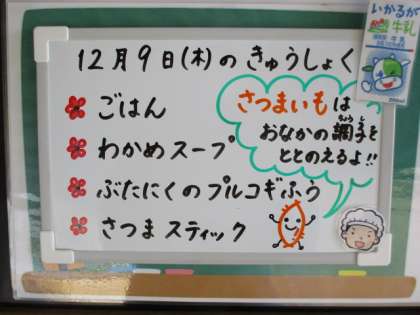 12月9日(木)のきゅうしょく
ごはん
わかめスープ
ぶたにくのプルコギふう
さつまスティック
さつまいもは
おなかの調子を
ちょうし
ととのえるよ!!
いかるが
牛乳